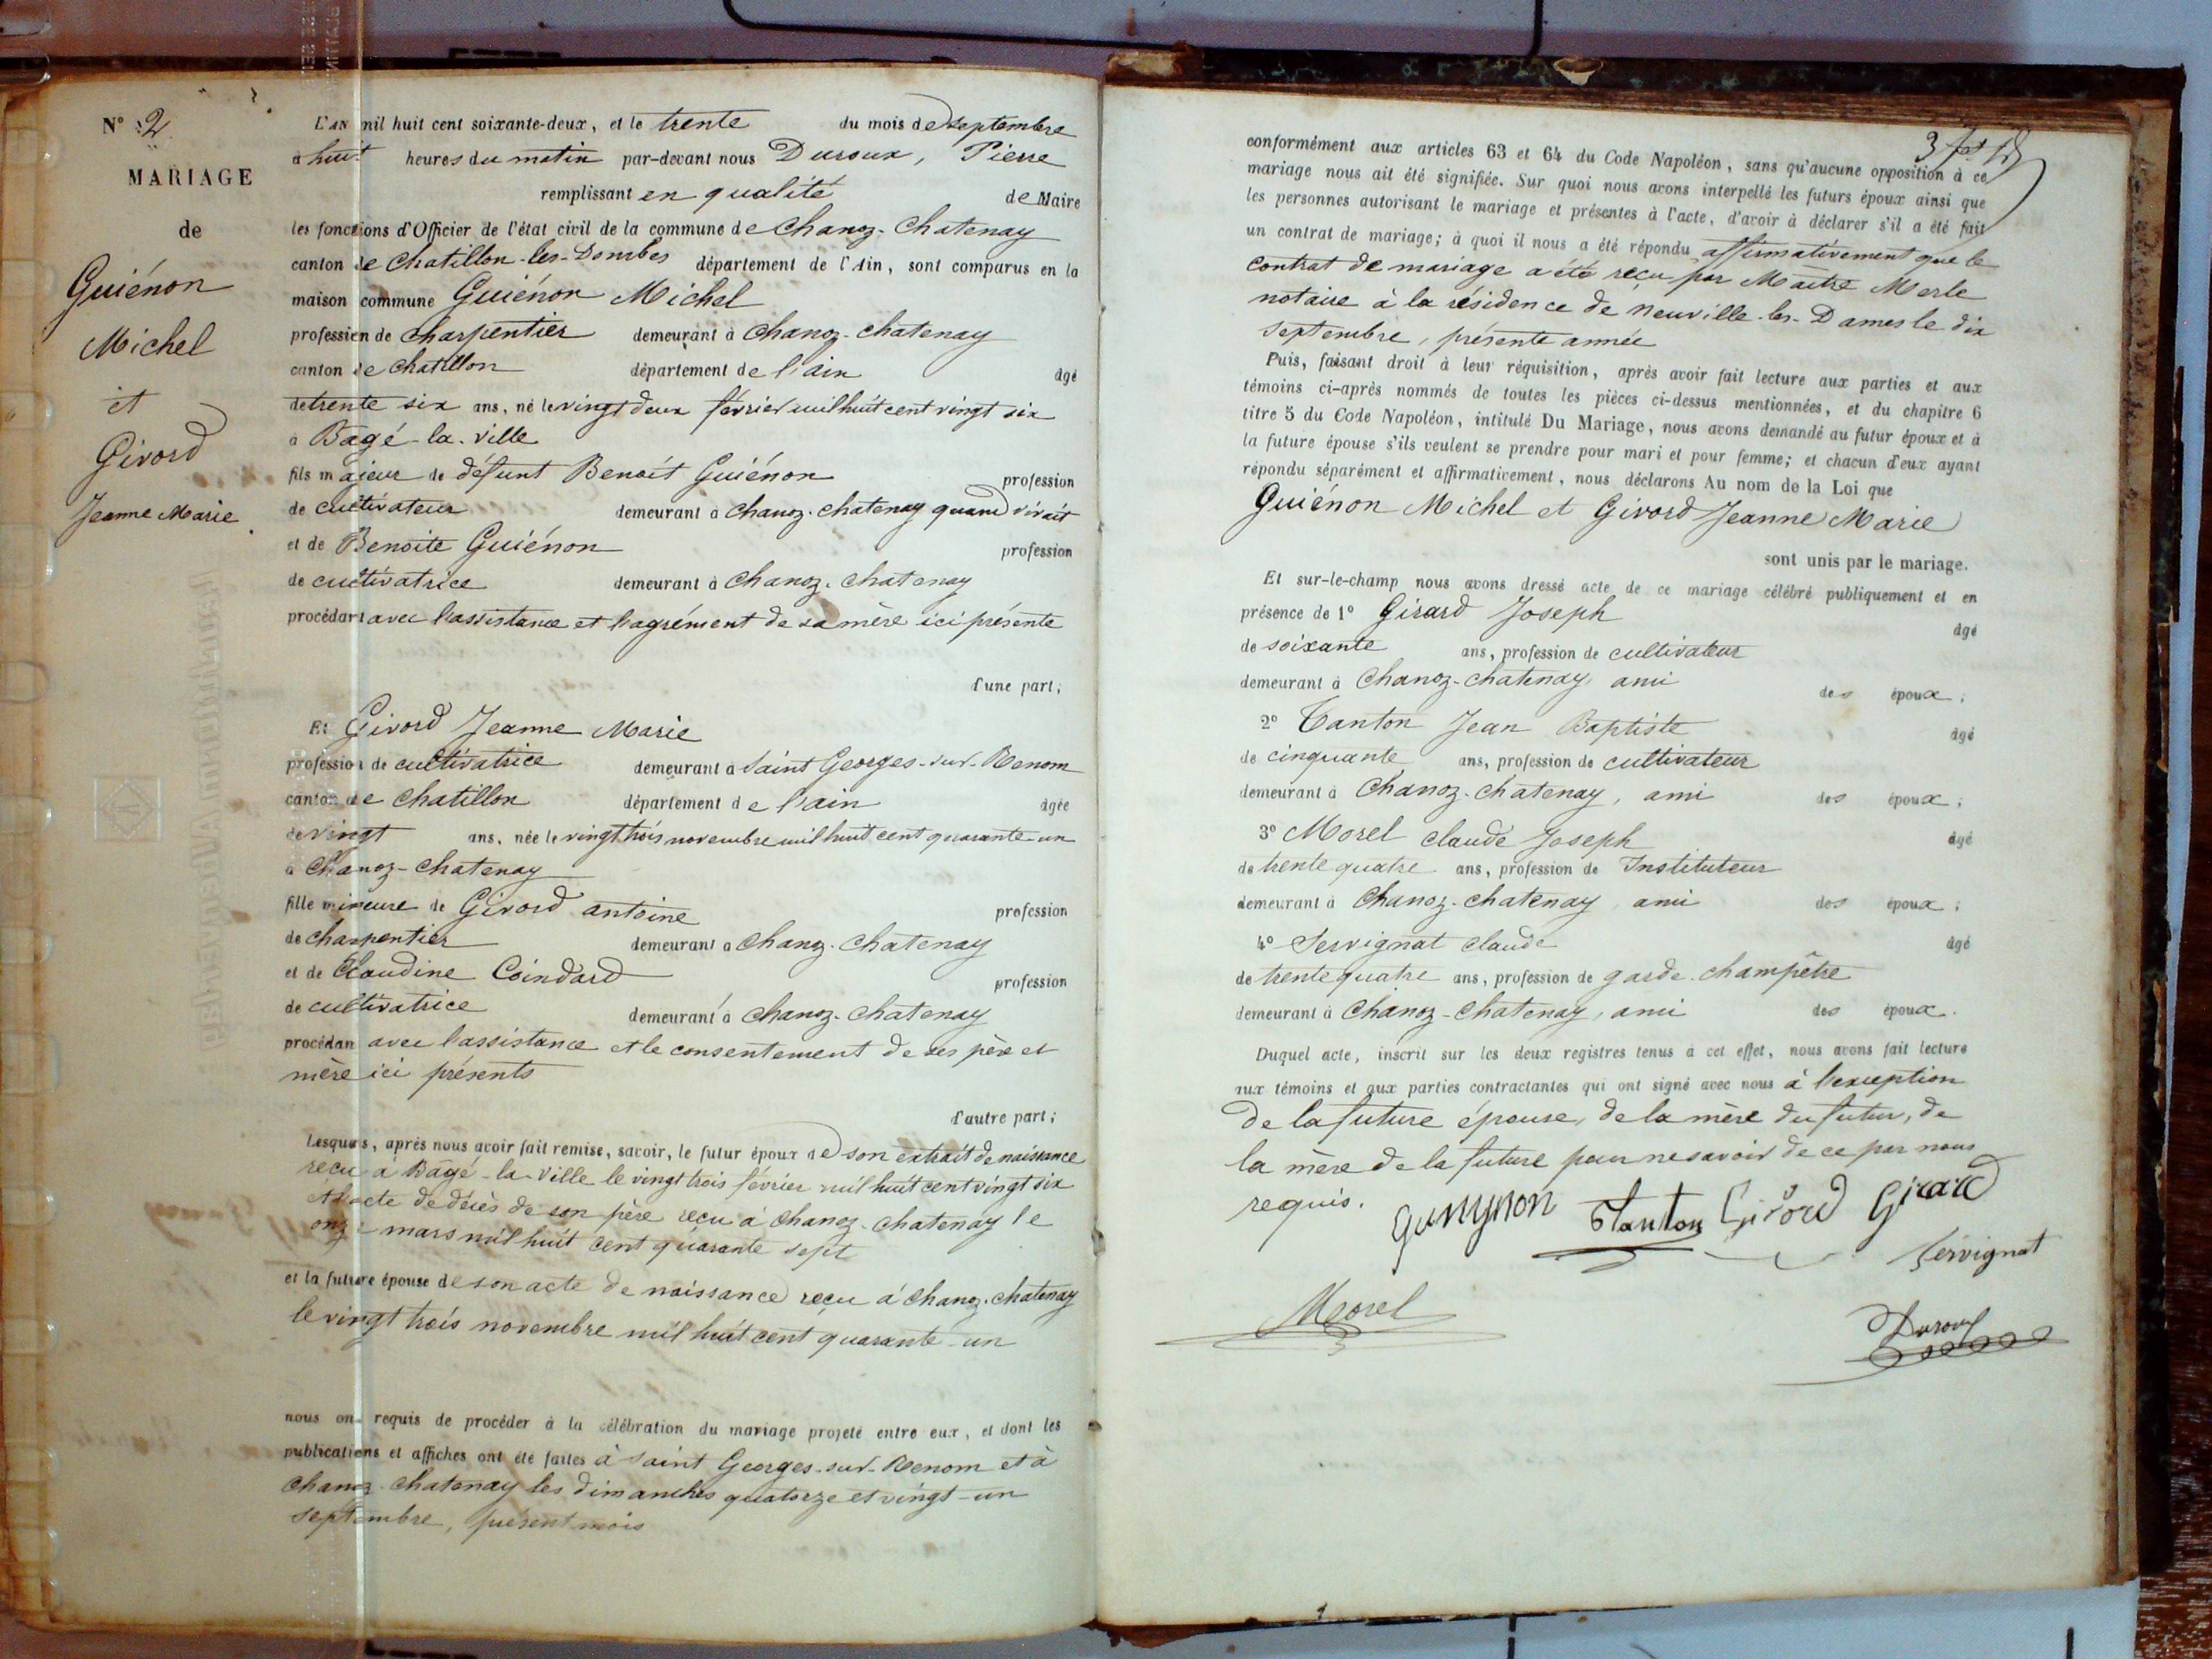 N° 2
MARIAGE
de
Guiénon
Michel
et
Givord
Jeanne Marie
L'AN mil huit cent soixante-deux, et le trente du mois de septembre
à huit heures du matin par-devant nous Duroux, Pierre
remplissant en qualité de Maire
les fonctions d'Officier de l'état civil de la commune de Chanoz-Chatenay
canton de Chatillon-les-Dombes département de l'Ain, sont comparus en la
maison commune Guiénon Michel
profession de charpentier demeurant à Chanoz-Chatenay
canton de Chatillon département de l'ain âgé
de trente six ans, né le vingt deux février mil huit cent vingt six
à Bagé-la-Ville
fils majeur de défunt Benoit Guiénon profession
de cultivateur demeurant à Chanoz-Chatenay quand vivait
et de Benoite Guiénon profession
de cultivatrice demeurant à Chanoz-Chatenay
procédant avec l'assistance et l'agrément de sa mère ici présente
d'une part;
Et Givord Jeanne Marie
profession de cultivatrice demeurant à Saint Georges-sur-Renom
canton de Chatillon département de l'ain âgée
de vingt ans, née le vingt trois novembre mil huit cent quarante-un
à Chanoz-Chatenay
fille mineure de Givord antoine profession
de charpentier demeurant à Chanoz-Chatenay
et de Claudine Coindard profession
de cultivatrice demeurant à Chanoz-Chatenay
procédan avec l'assistance et le consentement de ses père et
mère ici présents
d'autre part;
Lesquels, après nous avoir fait remise, savoir, le futur époux de son extrait de naissance
reçu à Bâgé-la-Ville le vingt trois février mil huit cent vingt six
et l'acte de décès de son père reçu à Chanoz-Chatenay le
onze mars mil huit cent quarante sept
et la future épouse de son acte de naissance reçu à Chanoz-Chatenay
le vingt trois novembre mil huit cent quarante-un
nous ont requis de procéder à la célébration du mariage projeté entre eux, et dont les
publications et affiches ont été faites à Saint Georges-sur-Renom et à
Chanoz-Chatenay les dimanches quatorze et vingt-un
septembre, présent mois
conformément aux articles 63 et 64 du Code Napoléon, sans qu'aucune opposition à ce
mariage nous ait été signifiée. Sur quoi nous avons interpellé les futurs époux ainsi que
les personnes autorisant le mariage et présentes à l'acte, d'avoir à déclarer s'il a été fait
un contrat de mariage; à quoi il nous a été répondu affirmativement que le
contrat de mariage a été reçu par Maître Merle
notaire à la résidence de Neuville-les-Dames le dix
septembre, présente année
Puis, faisant droit à leur réquisition, après avoir fait lecture aux parties et aux
témoins ci-après nommés de toutes les pièces ci-dessus mentionnées, et du chapitre 6
titre 5 du Code Napoléon, intitulé Du Mariage, nous avons demandé au futur époux et à
la future épouse s'ils veulent se prendre pour mari et pour femme; et chacun d'eux ayant
répondu séparément et affirmativement, nous déclarons Au nom de la Loi que
Guiénon Michel et Givord Jeanne Marie
sont unis par le mariage.
Et sur-le-champ nous avons dressé acte de ce mariage célébré publiquement et en
présence de 1° Girard Joseph âgé
de soixante ans, profession de cultivateur
demeurant à Chanoz-Chatenay, ami des époux;
2° Tanton Jean Baptiste âgé
de cinquante ans, profession de cultivateur
demeurant à Chanoz-Chatenay, ami des époux;
3° Morel Claude Joseph âgé
de trente quatre ans, profession de Instituteur
demeurant à Chanoz-Chatenay, ami des époux;
4° Servignat Claude âgé
de trente quatre ans, profession de garde-champêtre
demeurant à Chanoz-Chatenay, ami des époux.
Duquel acte, inscrit sur les deux registres tenus à cet effet, nous avons fait lecture
aux témoins et aux parties contractantes qui ont signé avec nous à l'exception
de la future épouse, de la mère du futur, de
la mère de la future pour ne savoir de ce par nous
requis.
Tanton Givord Girard
Servignat
Morel
Duroux